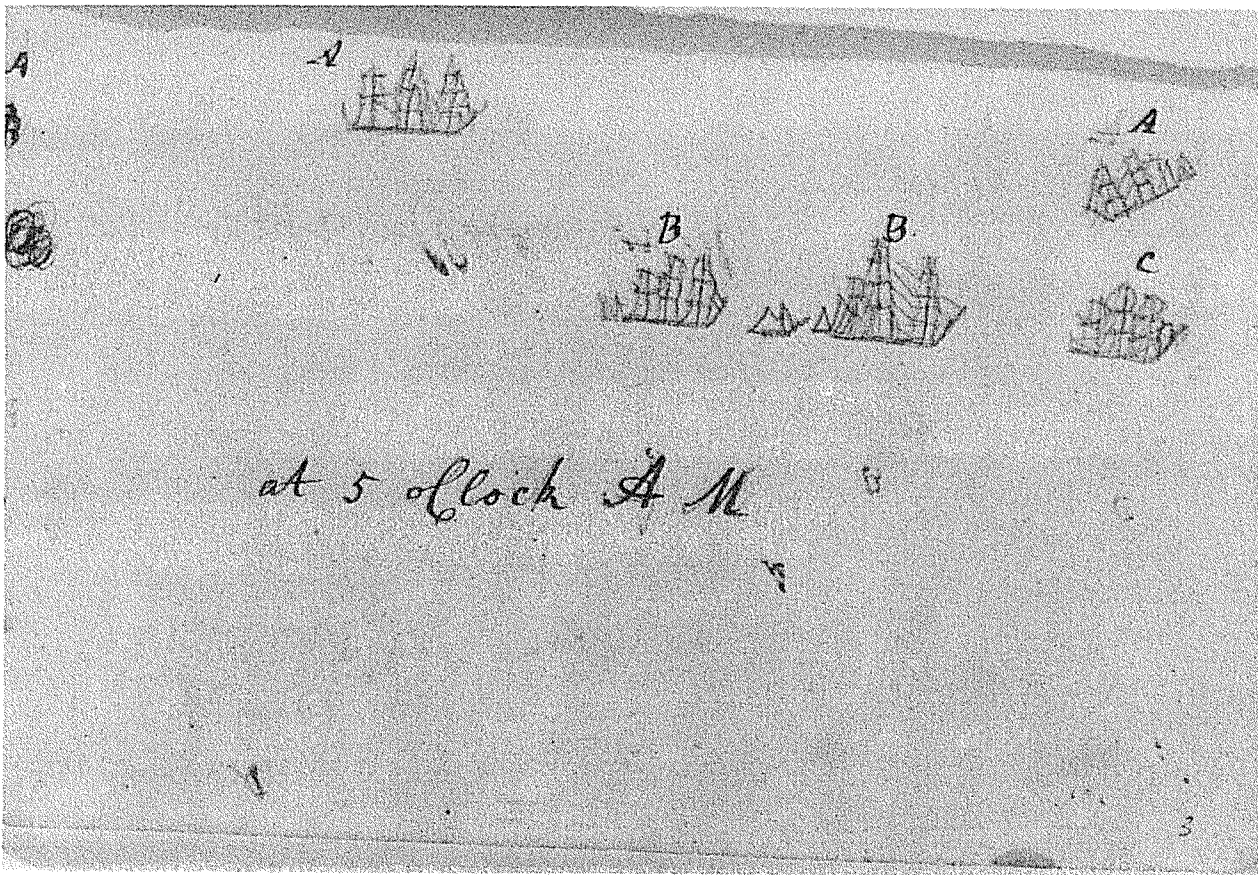 A
A
A
B
B
C
at 5 oClock A M
3